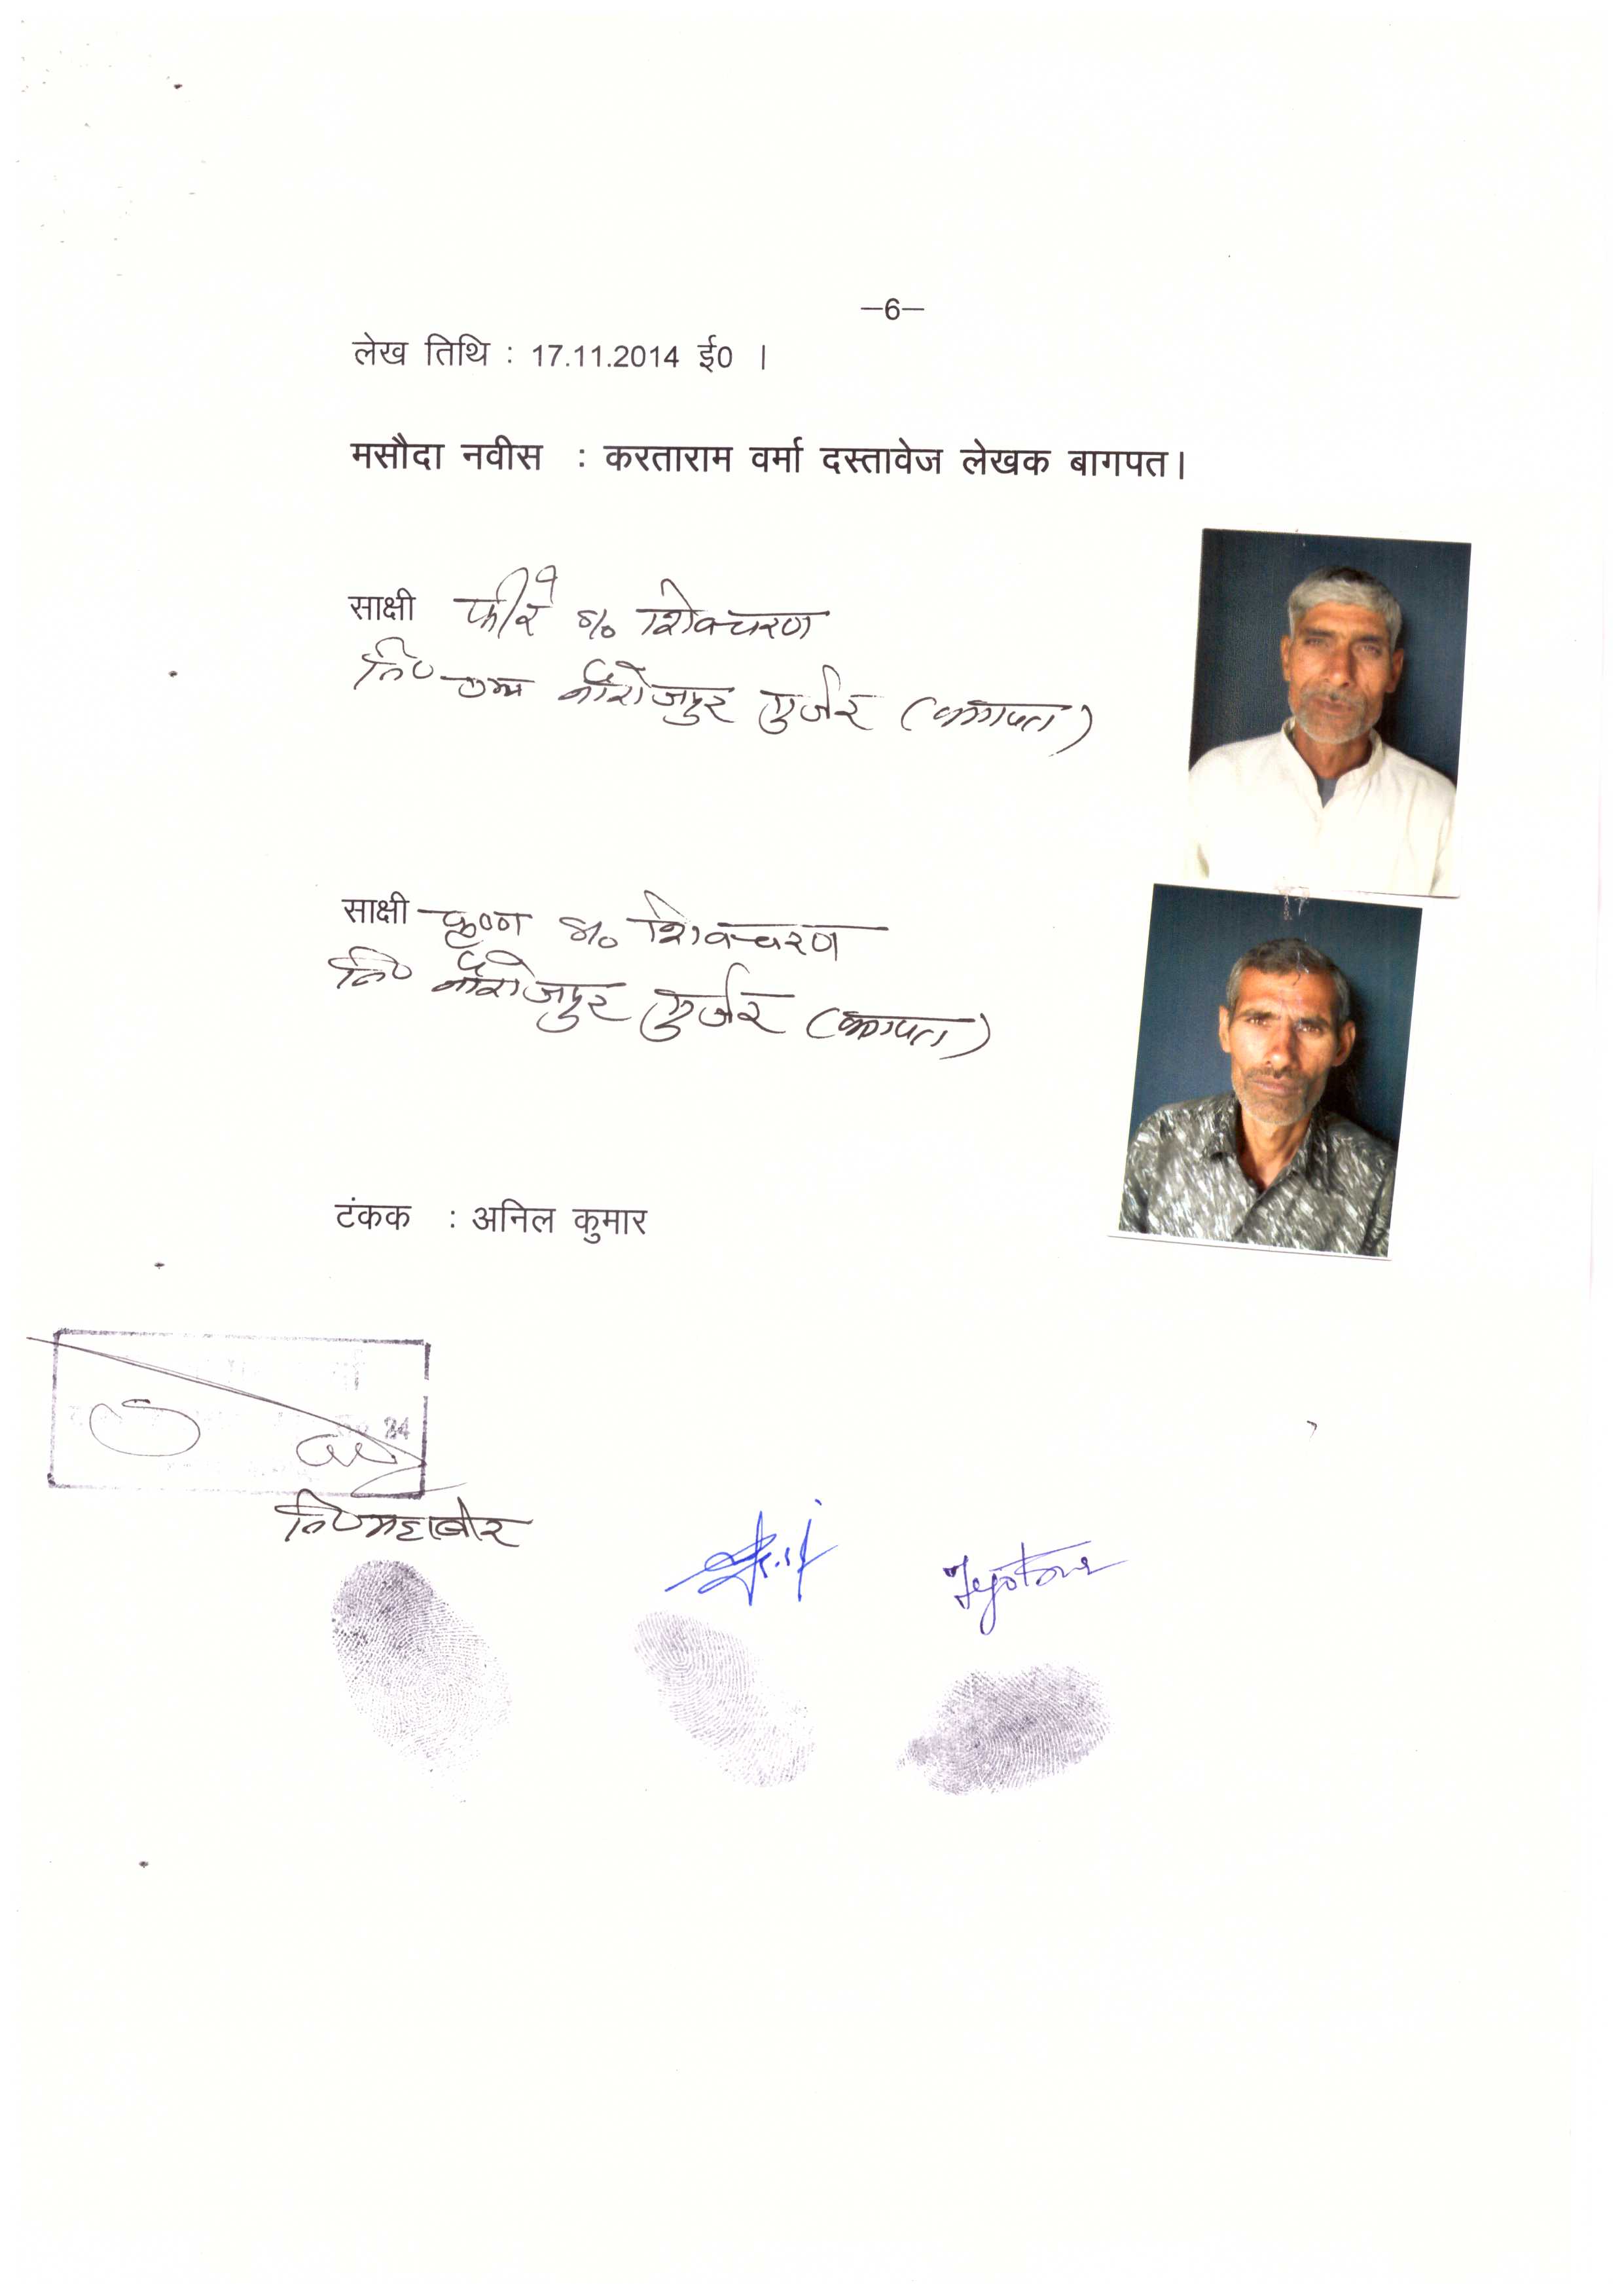 —6—
लेख तिथि : 17.11.2014 ई0 ।
मसौदा नवीस : करताराम वर्मा दस्तावेज लेखक बागपत।
साक्षी शिवचरण
नि० नौरोजपुर गुर्जर (बागपत)
साक्षी कृष्ण S/o शिवचरण
नि० नौरोजपुर गुर्जर (बागपत)
टंकक : अनिल कुमार
24
नि० महाबीर